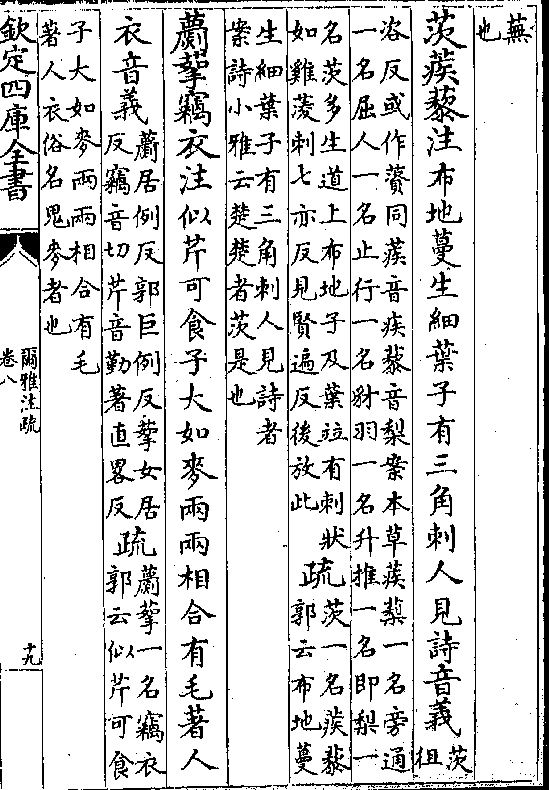 蕪
也
茨蒺藜注布地蔓生細葉子有三角刺人見詩音義茨徂
咨反或作薋同蒺音疾藜音梨案本草蒺䔧一名旁通
一名屈人一名止行一名豺羽一名升推一名即梨一
名茨多生道上布地子及葉竝有刺狀
如雞蓤刺七亦反見賢遍反後放此
疏茨一名蒺藜
郭云布地蔓
生細葉子有三角刺人見詩者
案詩小雅云楚楚者茨是也
蘮蒘竊衣注似芹可食子大如麥兩兩相合有毛著人
衣音義蘮居例反郭巨例反蒘女居
反竊音切芹音勤著直畧反
疏蘮蒘一名竊衣
郭云似芹可食
子大如麥兩兩相合有毛
著人衣俗名鬼麥者也
欽定四庫全書
爾雅注疏
卷八
十九